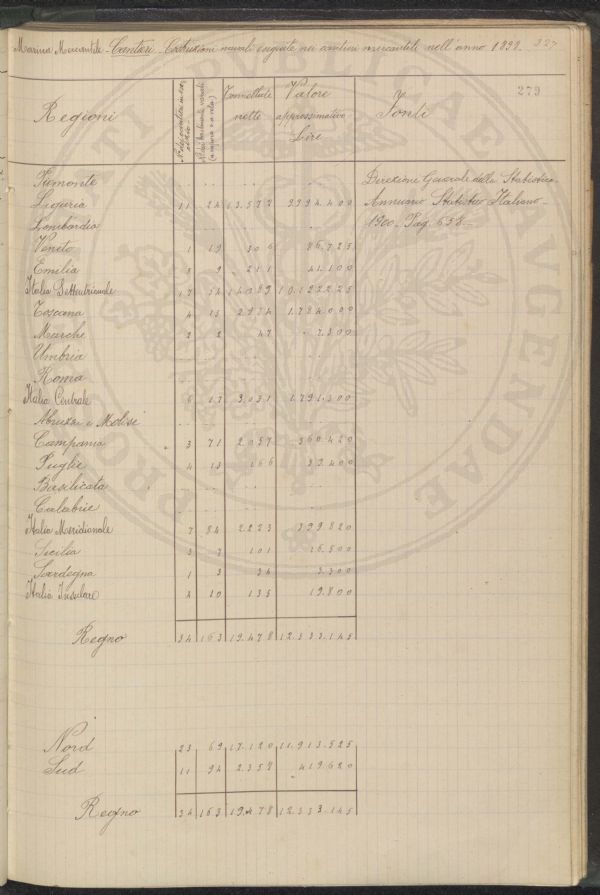 Marina Mercantile - Cantieri - Costruzioni navali eseguite nei cantieri mercantili nell'anno 1899. 227
279
Regioni | Tonnellate nette | Valore approssimativo Lire | Fonti
Piemonte .. .. .. ..
Liguria 11 24 13.577 9.994.400
Lombardia .. .. .. ..
Veneto 1 19 306 86.725
Emilia 5 9 211 41.100
Italia Settentrionale 17 54 14.089 10.122.225
Toscana 4 15 2984 1.784.000
Marche 2 2 47 7.300
Umbria .. .. .. ..
Roma .. .. .. ..
Italia Centrale 6 17 3.031 1.791.300
Abruzzi e Molise .. .. .. ..
Campania 3 71 2057 360.420
Puglie 4 13 166 39.400
Basilicata .. .. .. ..
Calabrie .. .. .. ..
Italia Meridionale 7 84 2223 399.820
Sicilia 3 7 101 16.500
Sardegna 1 3 34 3.300
Italia Insulare 4 10 135 19.800
Regno 34 163 19.478 12.333.145
Nord 23 69 17.120 11.913.525
Sud 11 94 2.358 419.620
Regno 34 163 19.478 12.333.145
Direzione Generale della Statistica -
Annuario Statistico Italiano -
1900. Pag. 658 -
PROVIDENTIAE
AUGENDAE